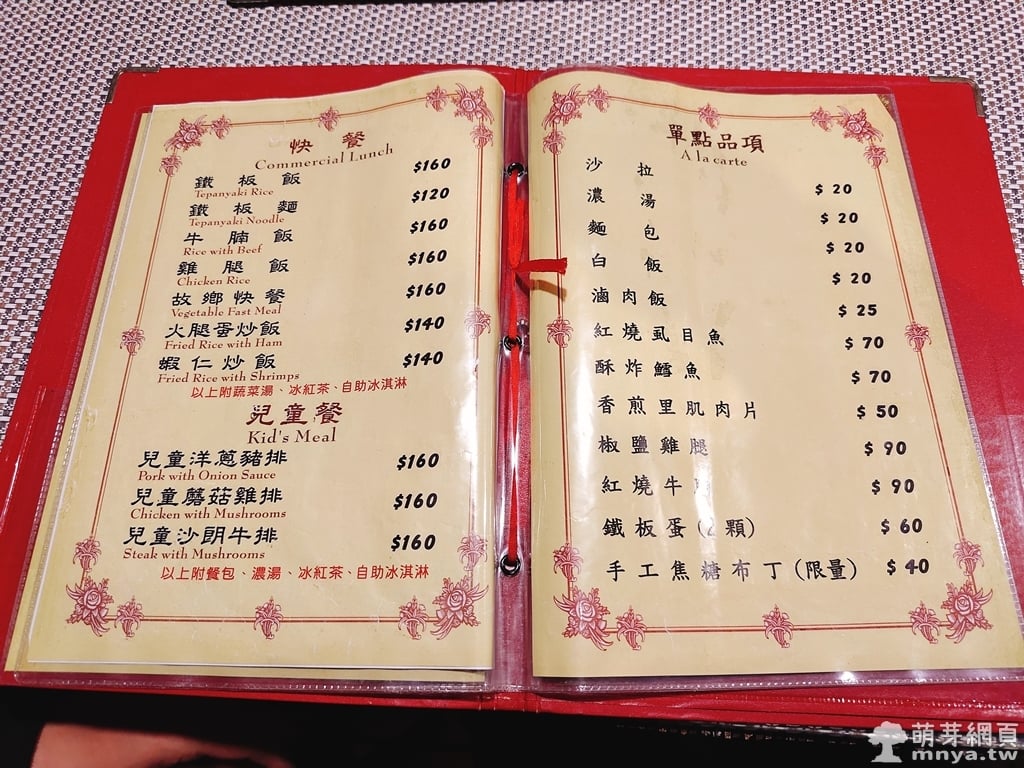 快餐
Commercial Lunch
鐵板飯 $160
Tepanyaki Rice
鐵板麵 $120
Tepanyaki Noodle
牛腩飯 $160
Rice with Beef
雞腿飯 $160
Chicken Rice
故鄉快餐 $160
Vegetable Fast Meal
火腿蛋炒飯 $140
Fried Rice with Ham
蝦仁炒飯 $140
Fried Rice with Shrimps
以上附蔬菜湯、冰紅茶、自助冰淇淋
兒童餐
Kid's Meal
兒童洋蔥豬排 $160
Pork with Onion Sauce
兒童蘑菇雞排 $160
Chicken with Mushrooms
兒童沙朗牛排 $160
Steak with Mushrooms
以上附餐包、濃湯、冰紅茶、自助冰淇淋
單點品項
A la carte
沙拉 $20
濃湯 $20
麵包 $20
白飯 $20
滷肉飯 $25
紅燒虱目魚 $70
酥炸鱈魚 $70
香煎里肌肉片 $50
椒鹽雞腿 $90
紅燒牛 $90
鐵板蛋(2顆) $60
手工焦糖布丁(限量) $40
萌芽網頁
mnya.tw